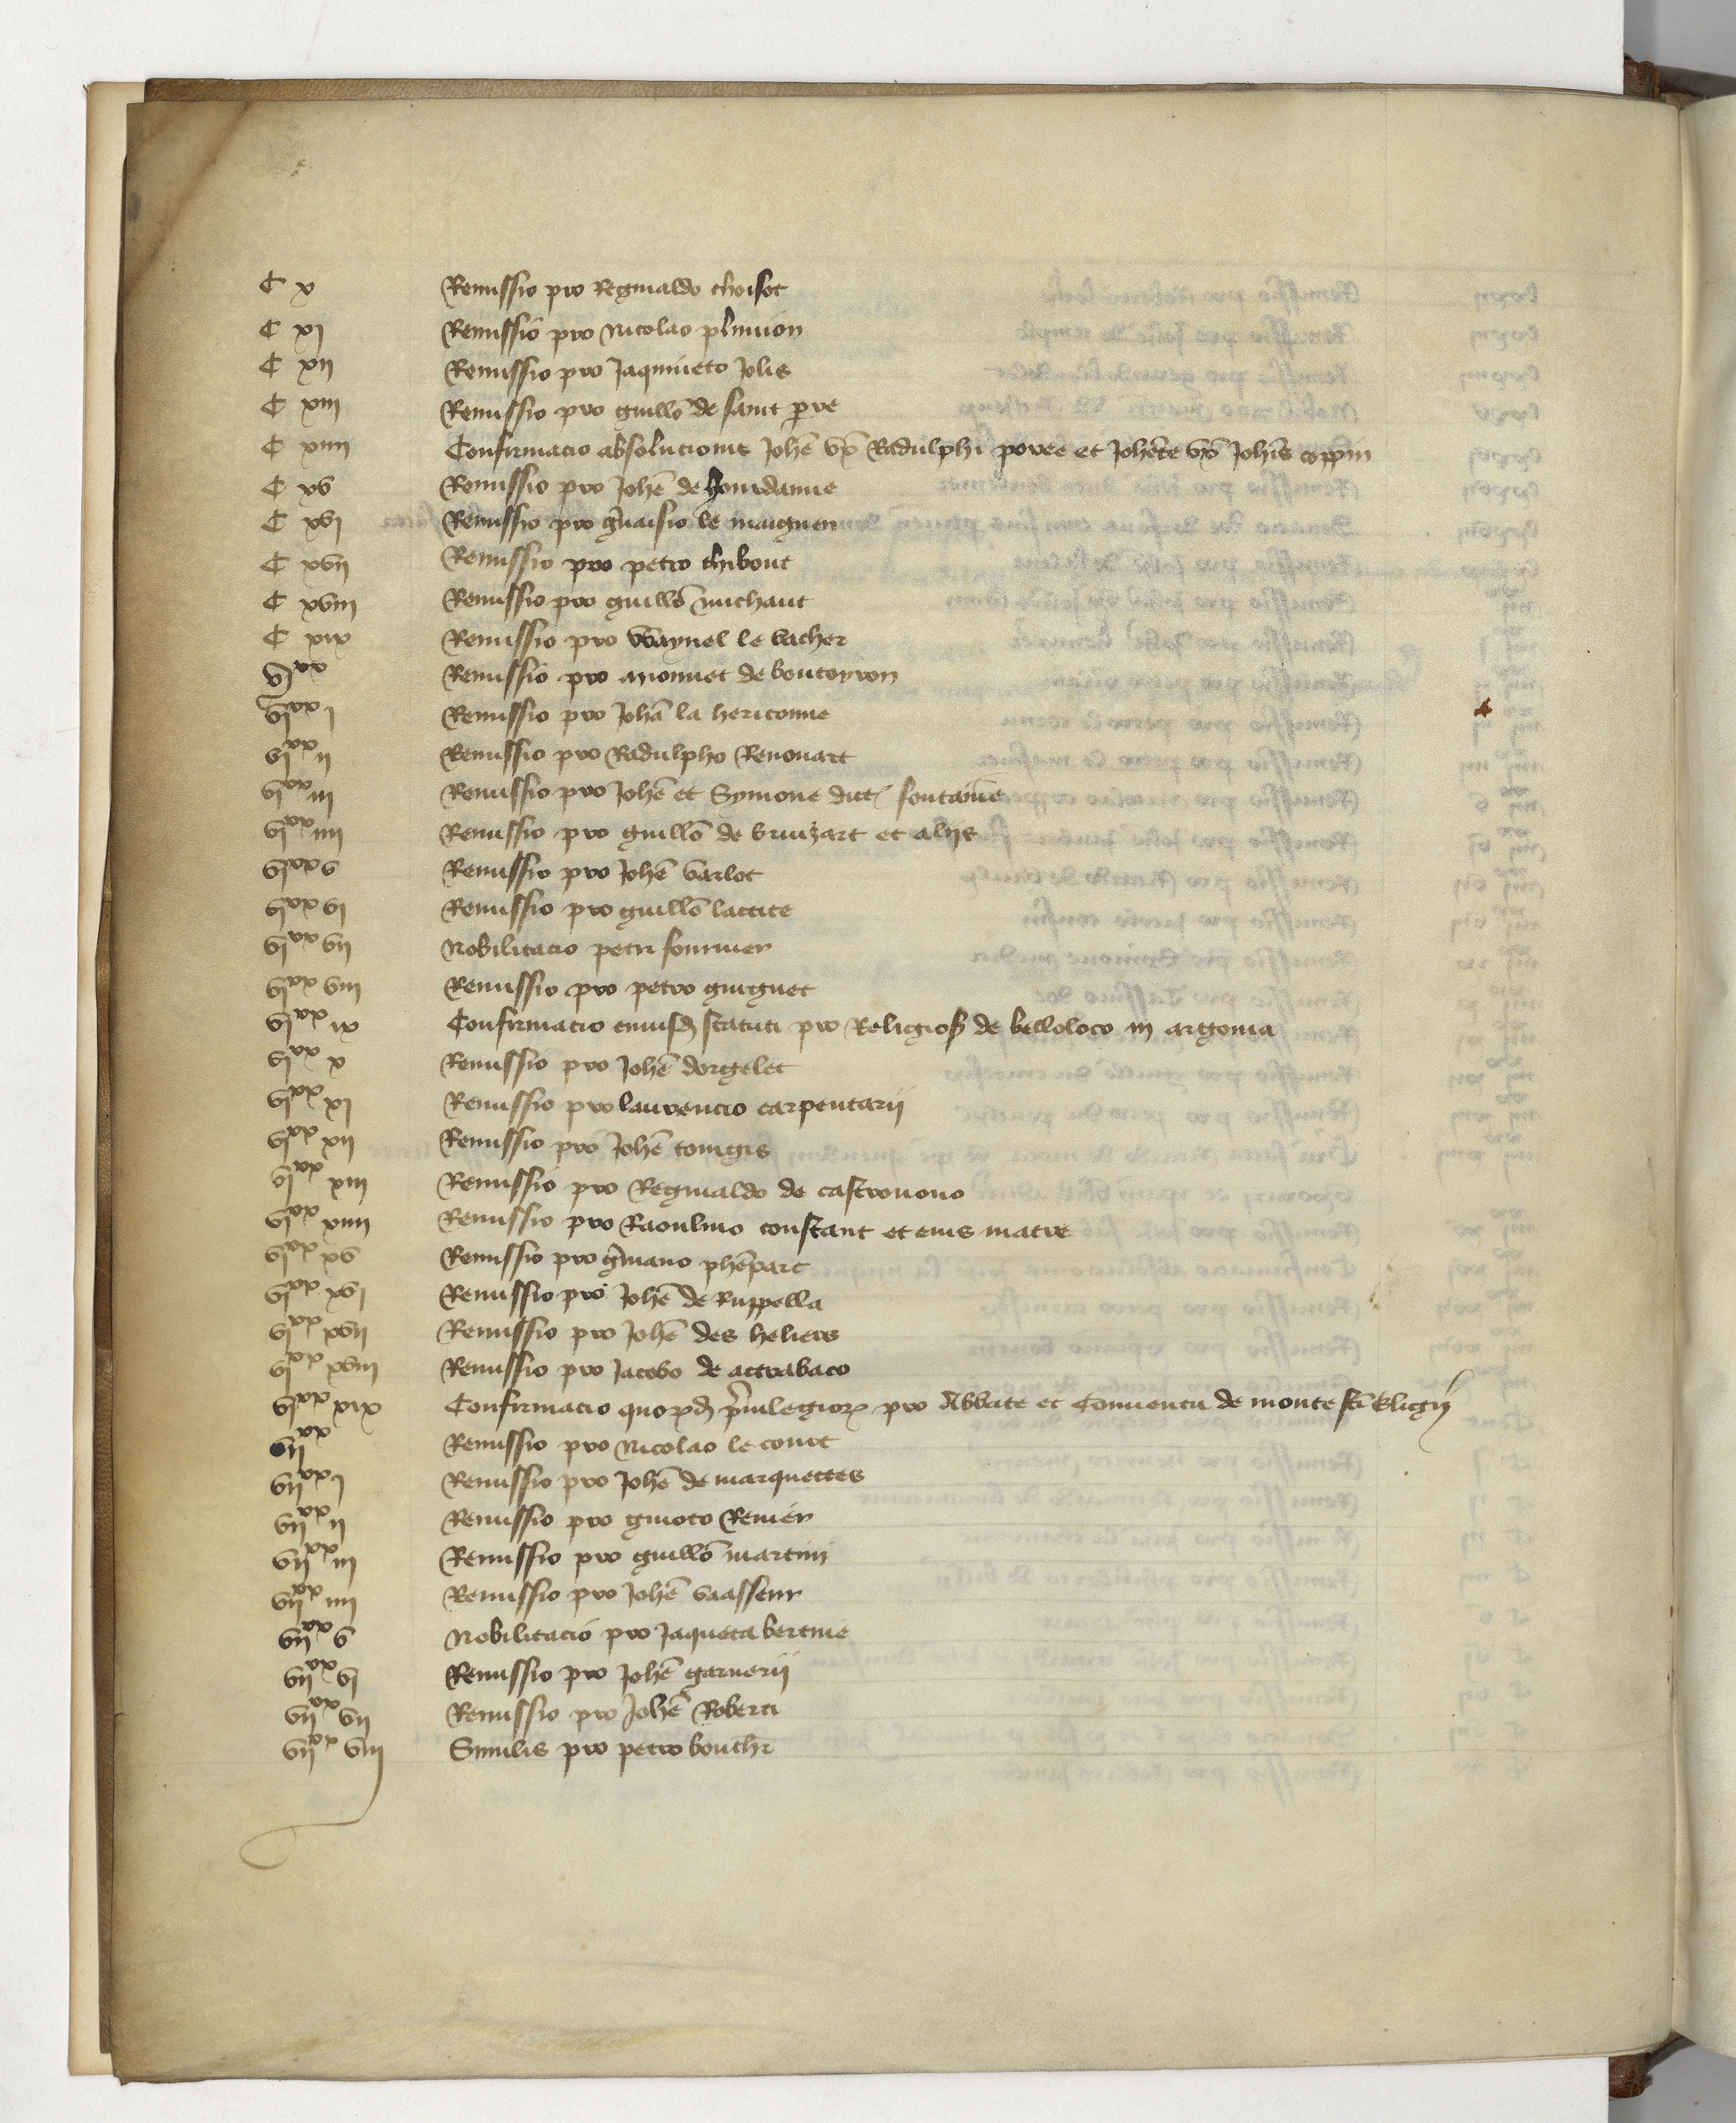 C x Remissio pro Reginaldo choisot
C xj Remissio pro Nicolao plunion
C xij Remissio pro Jaquineto Jolis
C xiij Remissio pro guillō de saint pere
C xiiij Confirmacio absolucionis Johē vxō Radulphi povre et Johēte vxō Johīs coppin
C xv Remissio pro Johē de houdanne
C xvj Remissio pro gvaisio le maignen
C xvij Remissio pro petro thibout
C xviij Remissio pro guillō michaut
C xix Remissio pro Waynel le vacher
vjxx Remissio pro anonnet de boutonron
vjxx j Remissio pro Johā la hericonne
vjxx ij Remissio pro Radulpho Renouart
vjxx iij Remissio pro Johē et Symone dict fontaine
vjxx iiij Remissio pro guillō de bruizart et alijs
vjxx v Remissio pro Johē varlot
vjxx vj Remissio pro guillō lattite
vjxx vij Nobilitacio petri fournier
vjxx viij Remissio pro petro guiguet
vjxx ix Confirmacio cuiusd statuti pro Religios de belloloco in argonia
vjxx x Remissio pro Johē dorgelet
vjxx xj Remissio pro laurencio carpentarij
vjxx xij Remissio pro Johē tongis
vjxx xiij Remissio pro Reginaldo de castronouo
vjxx xiiij Remissio pro Raoulino constant et eius matre
vjxx xv Remissio pro gmano phēpart
vjxx xvj Remissio pro Johē de Ruppella
vjxx xvij Remissio pro Johē des heliers
vjxx xviij Remissio pro Jacobo de attrabaco
vjxx xix Confirmacio quord pvilegior pro Abbate et Conuentu de monte sti Eligij
vijxx Remissio pro Nicolao le comt
vijxx j Remissio pro Johē de marquettes
vijxx ij Remissio pro guioto Renier
vijxx iij Remissio pro guillō martini
vijxx iiij Remissio pro Johē vaasseur
vijxx v Nobilitacio pro Jaqueta bertine
vijxx vj Remissio pro Johē garnerij
vijxx vij Remissio pro Johē Roberti
vijxx viij Similis pro petro bouchī